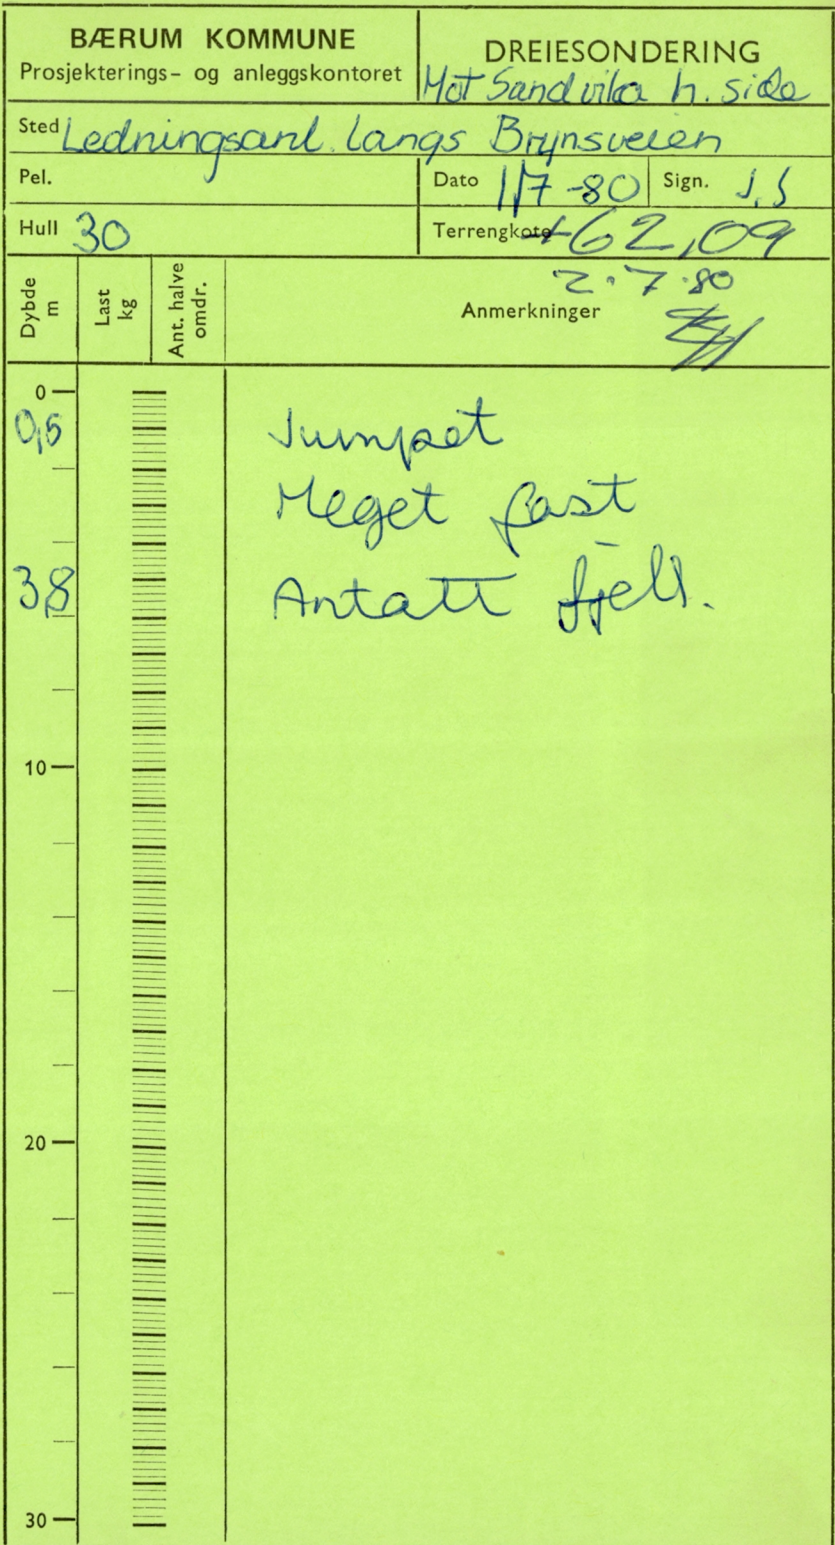 BÆRUM KOMMUNE
Prosjekterings- og anleggskontoret
DREIESONDERING
Mot Sandvika h. side
Sted Ledningsanl. langs Brynsveien
Pel.
Dato 1/7-80 Sign. J.S
Hull 30
Terrengkote +62,09
Dybde m
Last kg
Ant. halve omdr.
2.7.80
Anmerkninger
0
0,5 Jumpet
Meget fast
3,8 Antatt fjell.
10
20
30